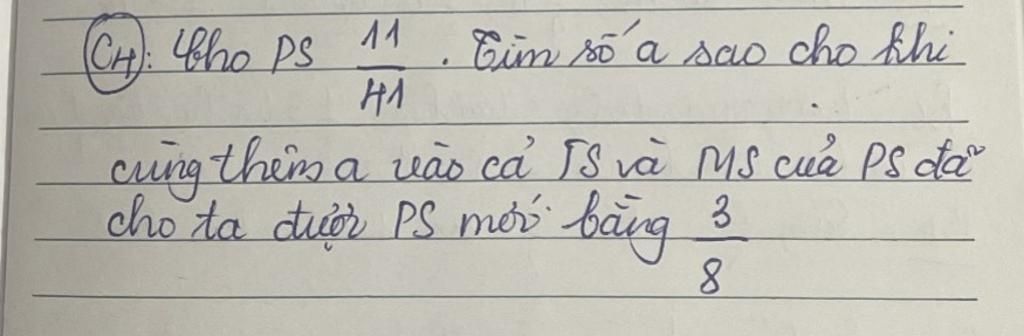 C4: Cho PS 11/41. Tìm số a sao cho khi
cùng thêm a vào cả TS và MS của PS đã
cho ta được PS mới bằng 3/8